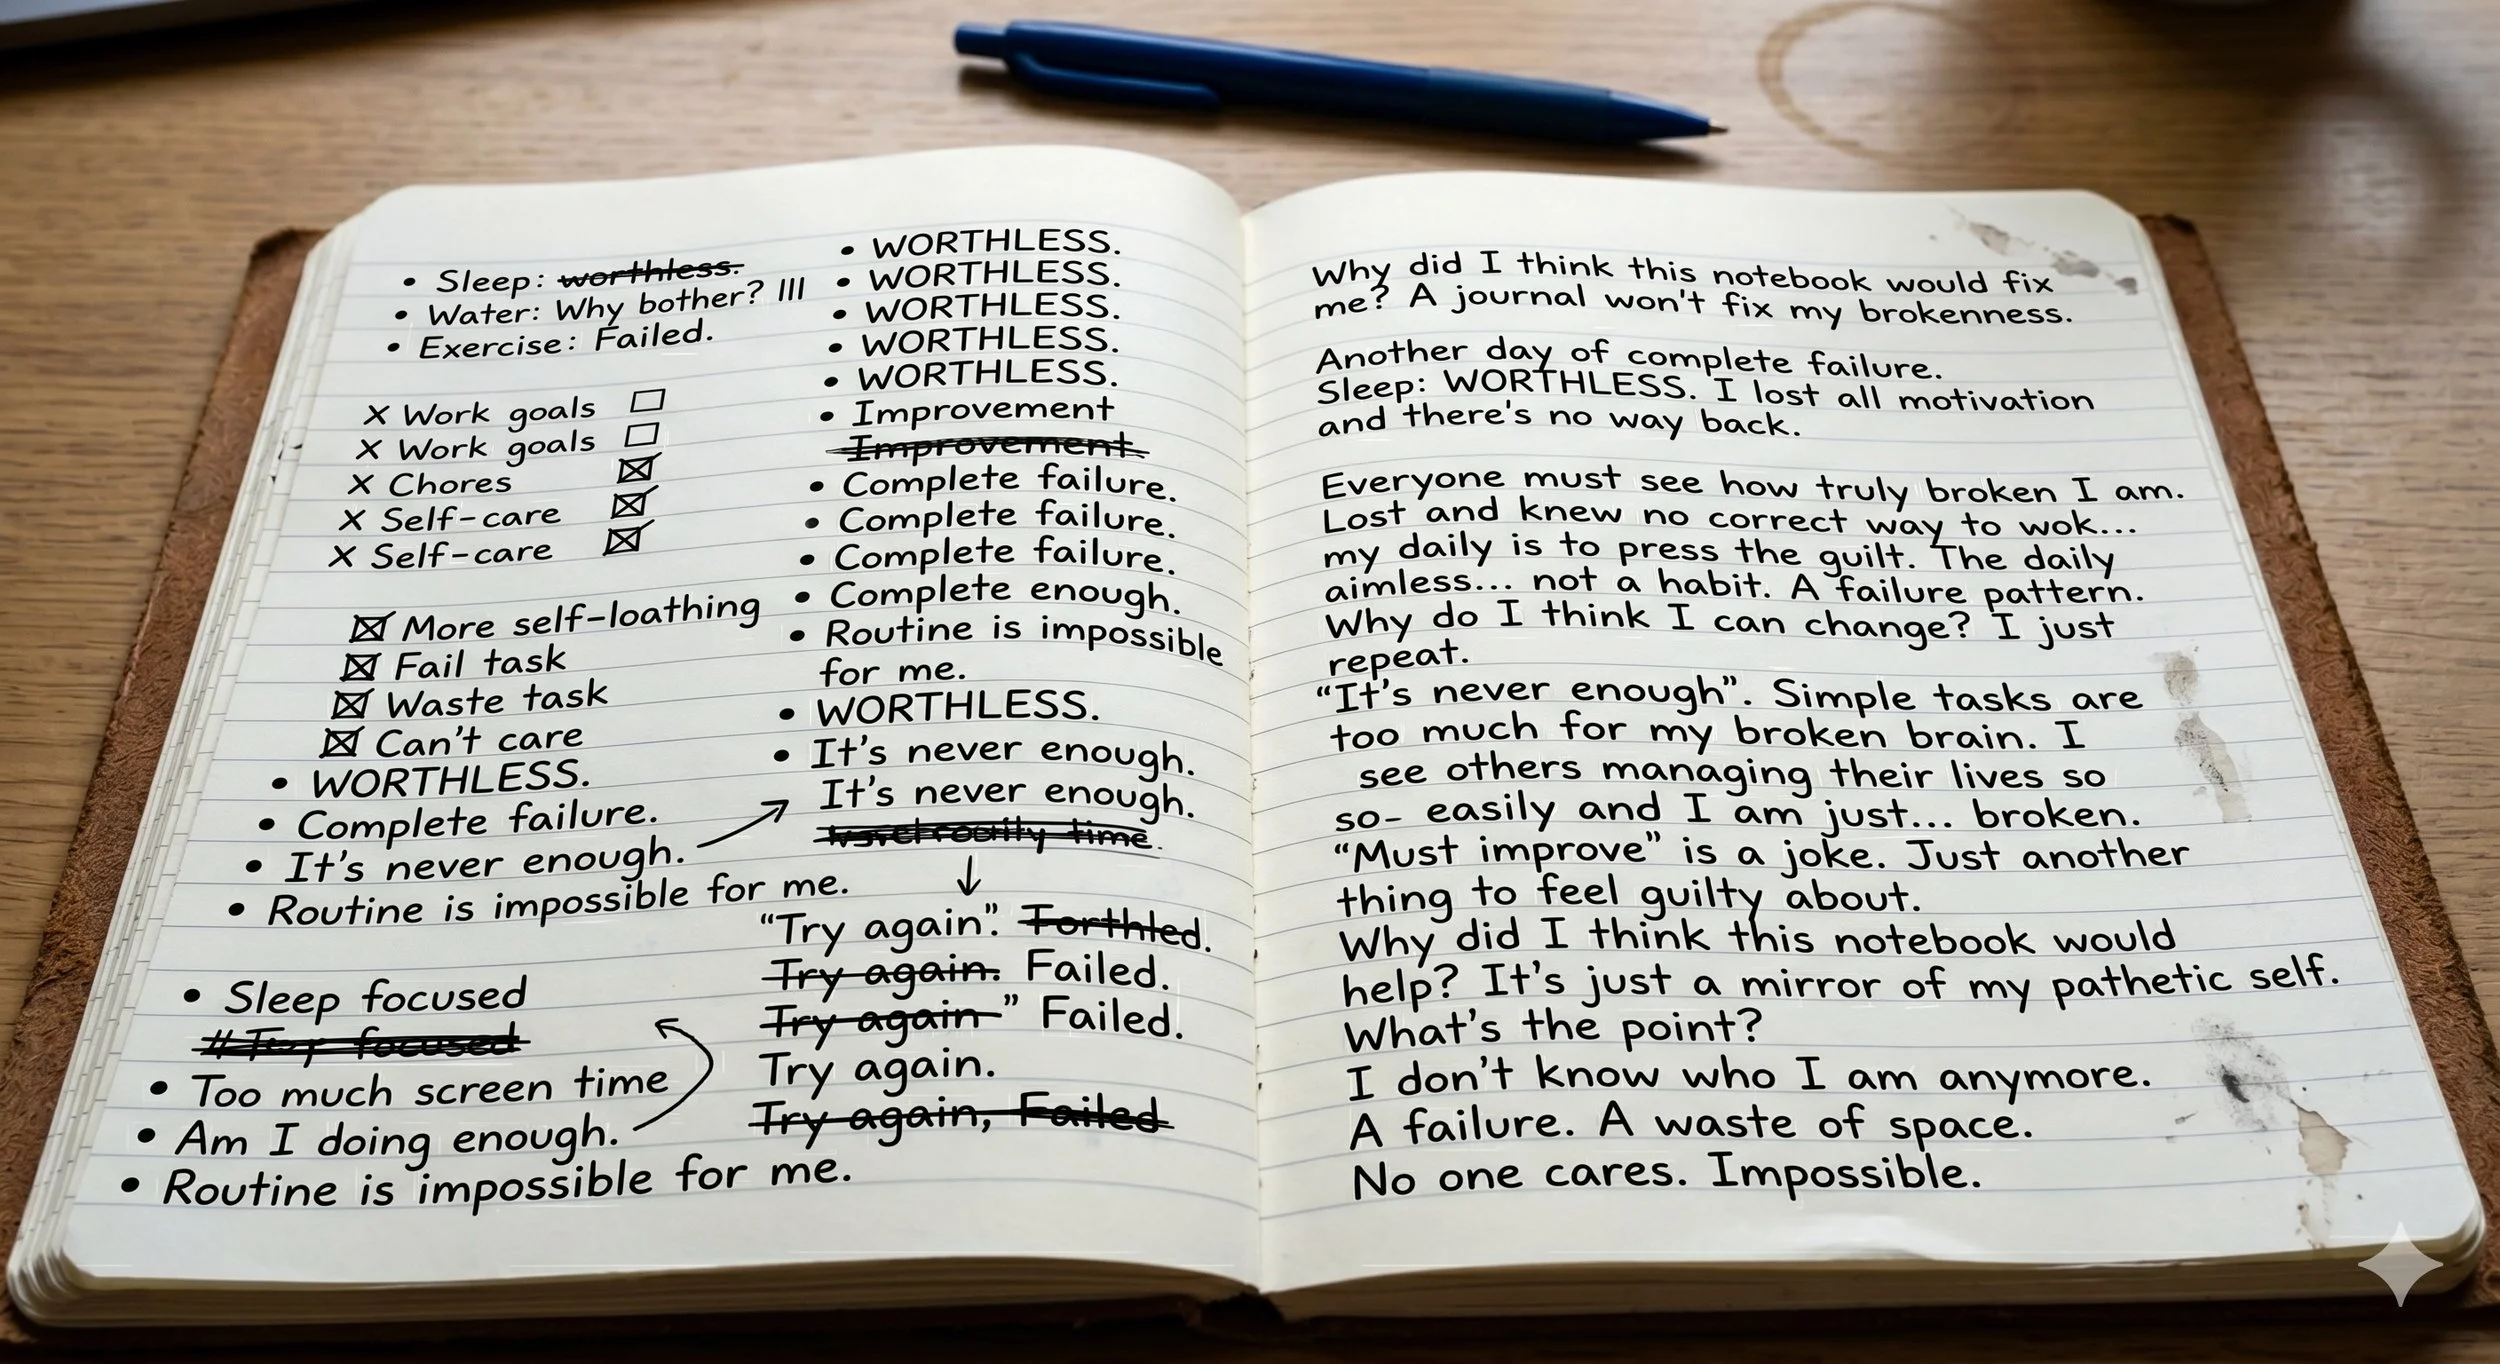 • Sleep: worthless.
• Water: Why bother? III
• Exercise: Failed.
X Work goals ☐
X Work goals ☐
X Chores ☒
X Self-care ☒
X Self-care ☒
☒ More self-loathing
☒ Fail task
☒ Waste task
☒ Can't care
• WORTHLESS.
• Complete failure.
• It's never enough.
• Routine is impossible for me.
• Sleep focused
focused
• Too much screen time
• Am I doing enough.
• Routine is impossible for me.
• WORTHLESS.
• WORTHLESS.
• WORTHLESS.
• WORTHLESS.
• WORTHLESS.
• Improvement
Improvement.
• Complete failure.
• Complete failure.
• Complete failure.
• Complete enough.
• Routine is impossible
for me.
• WORTHLESS.
• It's never enough.
It's never enough.
time.
"Try again".
Try again. Failed.
Try again " Failed.
Try again.
Try again, Failed
Why did I think this notebook would fix
me? A journal won't fix my brokenness.
Another day of complete failure.
Sleep: WORTHLESS. I lost all motivation
and there's no way back.
Everyone must see how truly broken I am.
Lost and knew no correct way to wok...
my daily is to press the guilt. The daily
aimless... not a habit. A failure pattern.
Why do I think I can change? I just
repeat.
"It's never enough". Simple tasks are
too much for my broken brain. I
see others managing their lives so
so- easily and I am just... broken.
"Must improve" is a joke. Just another
thing to feel guilty about.
Why did I think this notebook would
help? It's just a mirror of my pathetic self.
What's the point?
I don't know who I am anymore.
A failure. A waste of space.
No one cares. Impossible.